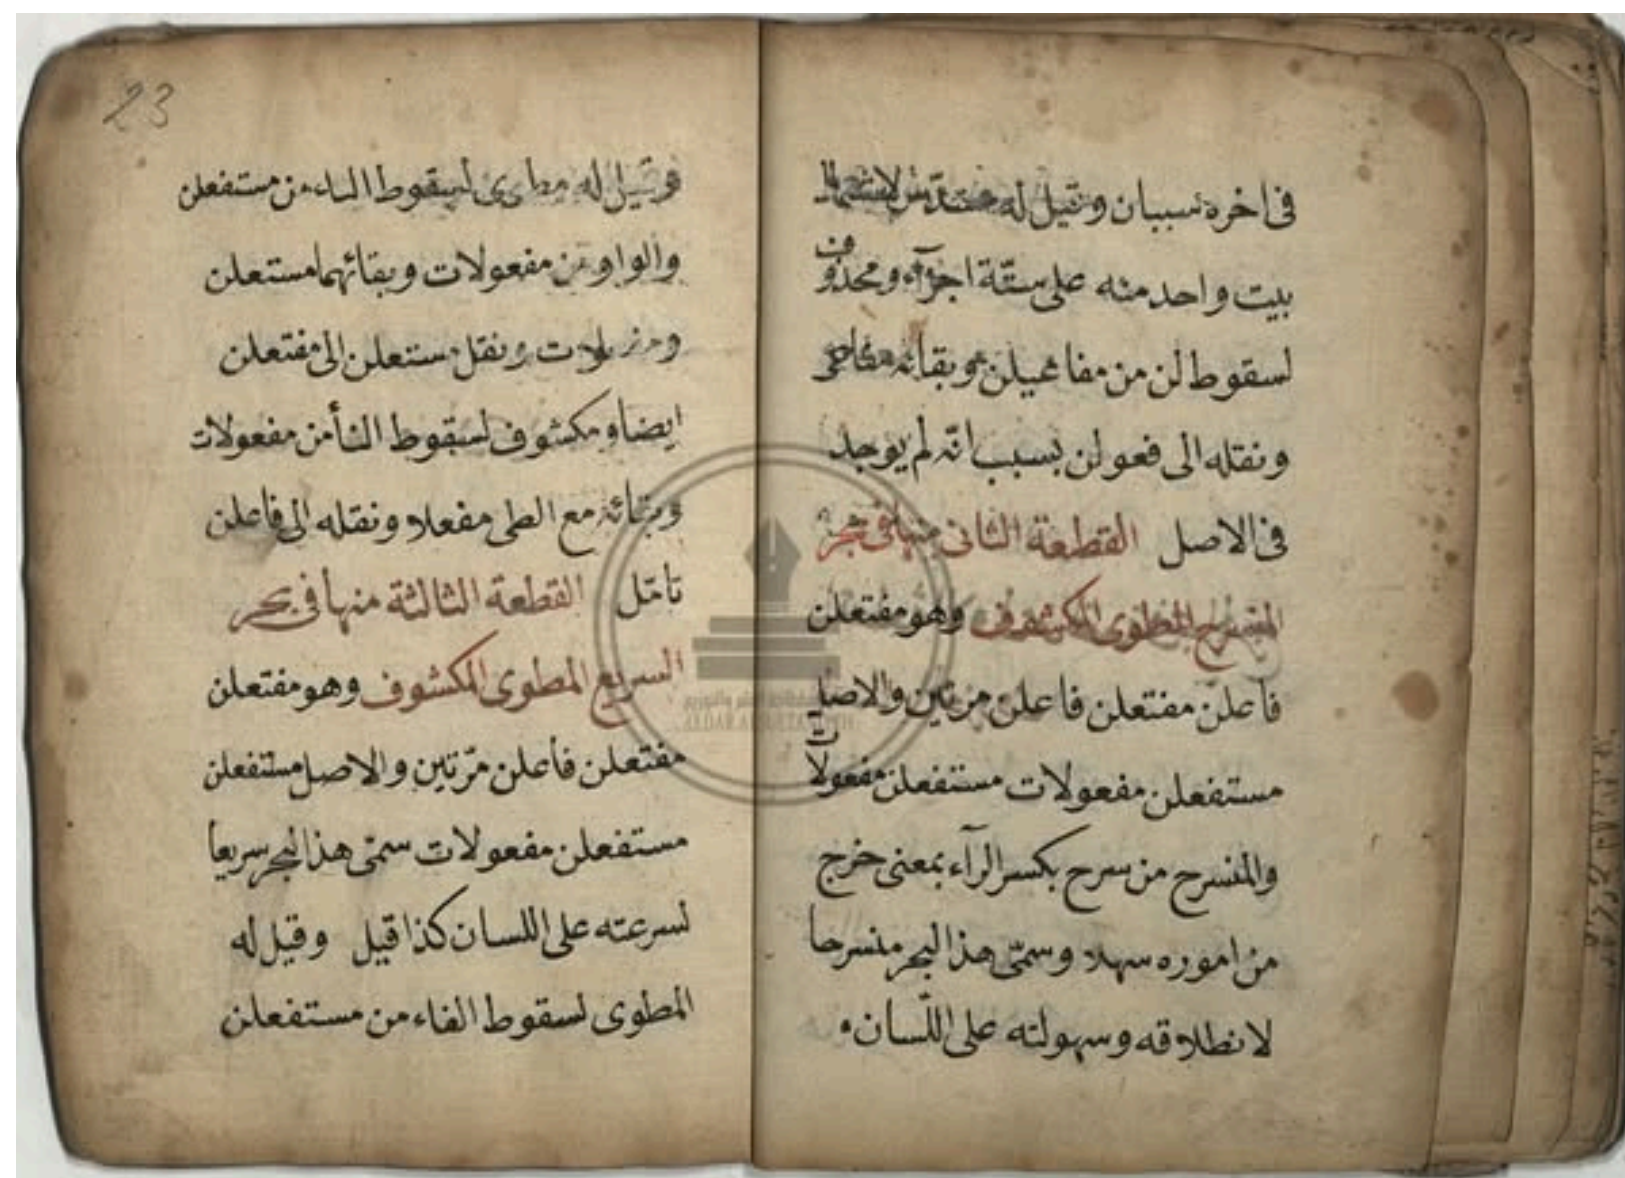 فى اخره سببان وقيل له مسدّس لاشتمال
بيت واحد منه على ستّة اجزآء ومحذوف
لسقوط لن من مفاعيلن وبقائه مفاعى
ونقله الى فعولن بسبب انّه لم يوجد
فى الاصل القطعة الثانى منها فى بحر
المنسرح المطوى المكشوف وهو مفتعلن
فاعلن مفتعلن فاعلن مرتين والاصل
مستفعلن مفعولات مستفعلن مفعولات
والمنسرح من سرح بكسر الرآء بمعنى خرج
من اموره سهلا وسمّى هذا البحر منسرحا
لانطلاقه وسهولته على اللّسان
23
وقيل له مطوى لسقوط الفاء من مستفعلن
والواو من مفعولات وبقائهما مستعلن
ومفعلات ونقل مستعلن الى مفتعلن
ايضا ومكشوف لسقوط التأ من مفعولات
وبقائه مع الطى مفعلا ونقله الى فاعلن
تامّل القطعة الثالثة منها فى بحر
السريع المطوى المكشوف وهو مفتعلن
مفتعلن فاعلن مرّتين والاصل مستفعلن
مستفعلن مفعولات سمّى هذا البحر سريعا
لسرعته على اللسان كذا قيل وقيل له
المطوى لسقوط الفاء من مستفعلن